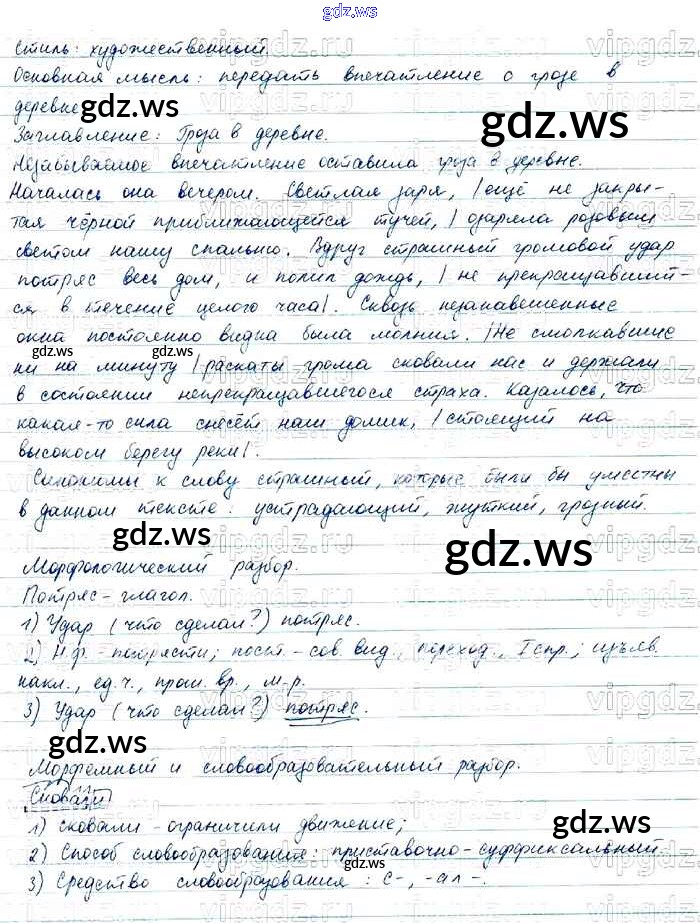 gdz.ws
Стиль: художественный.
Основная мысль: передать впечатление о грозе в
деревне
Заглавление: Гроза в деревне.
Незабываемое впечатление оставила гроза в деревне.
Началась она вечером. Светлая заря, |ещё не закры-
тая чёрной приближающейся тучей,| озаряла розовым
светом нашу спальню. Вдруг страшный громовой удар
потряс весь дом, и полил дождь, | не прекращавший-
ся в течение целого часа|. Сквозь незанавешенные
окна постоянно видна была молния. |Не смолкавшие
ни на минуту | раскаты грома сковали нас и держали
в состоянии непрекращавшегося страха. Казалось, что
какая-то сила снесёт наш домик, | стоящий на
высоком берегу реки|.
Синонимы к слову страшный, которые были бы уместны
в данном тексте: устрадающий, жуткий, грозный.
Морфологический разбор.
Потряс - глагол.
1) Удар (что сделал?) потряс.
2) Н.ф. - потрясти; пост. - сов. вид., переход., I спр.; изъяв.
накл., ед.ч., прош. вр., м.р.
3) Удар (что сделал?) потряс.
Морфемный и словообразовательный разбор.
Сковали
1) сковали - ограничили движение;
2) Способ словообразования: приставочно-суффиксальный.
3) Средство словообразования: с-, -ал-.
gdz.ws
gdz.ws
gdz.ws
gdz.ws
gdz.ws
gdz.ws
gdz.ws
gdz.ws
gdz.ws
gdz.ws
gdz.ws
vipgdz.ru